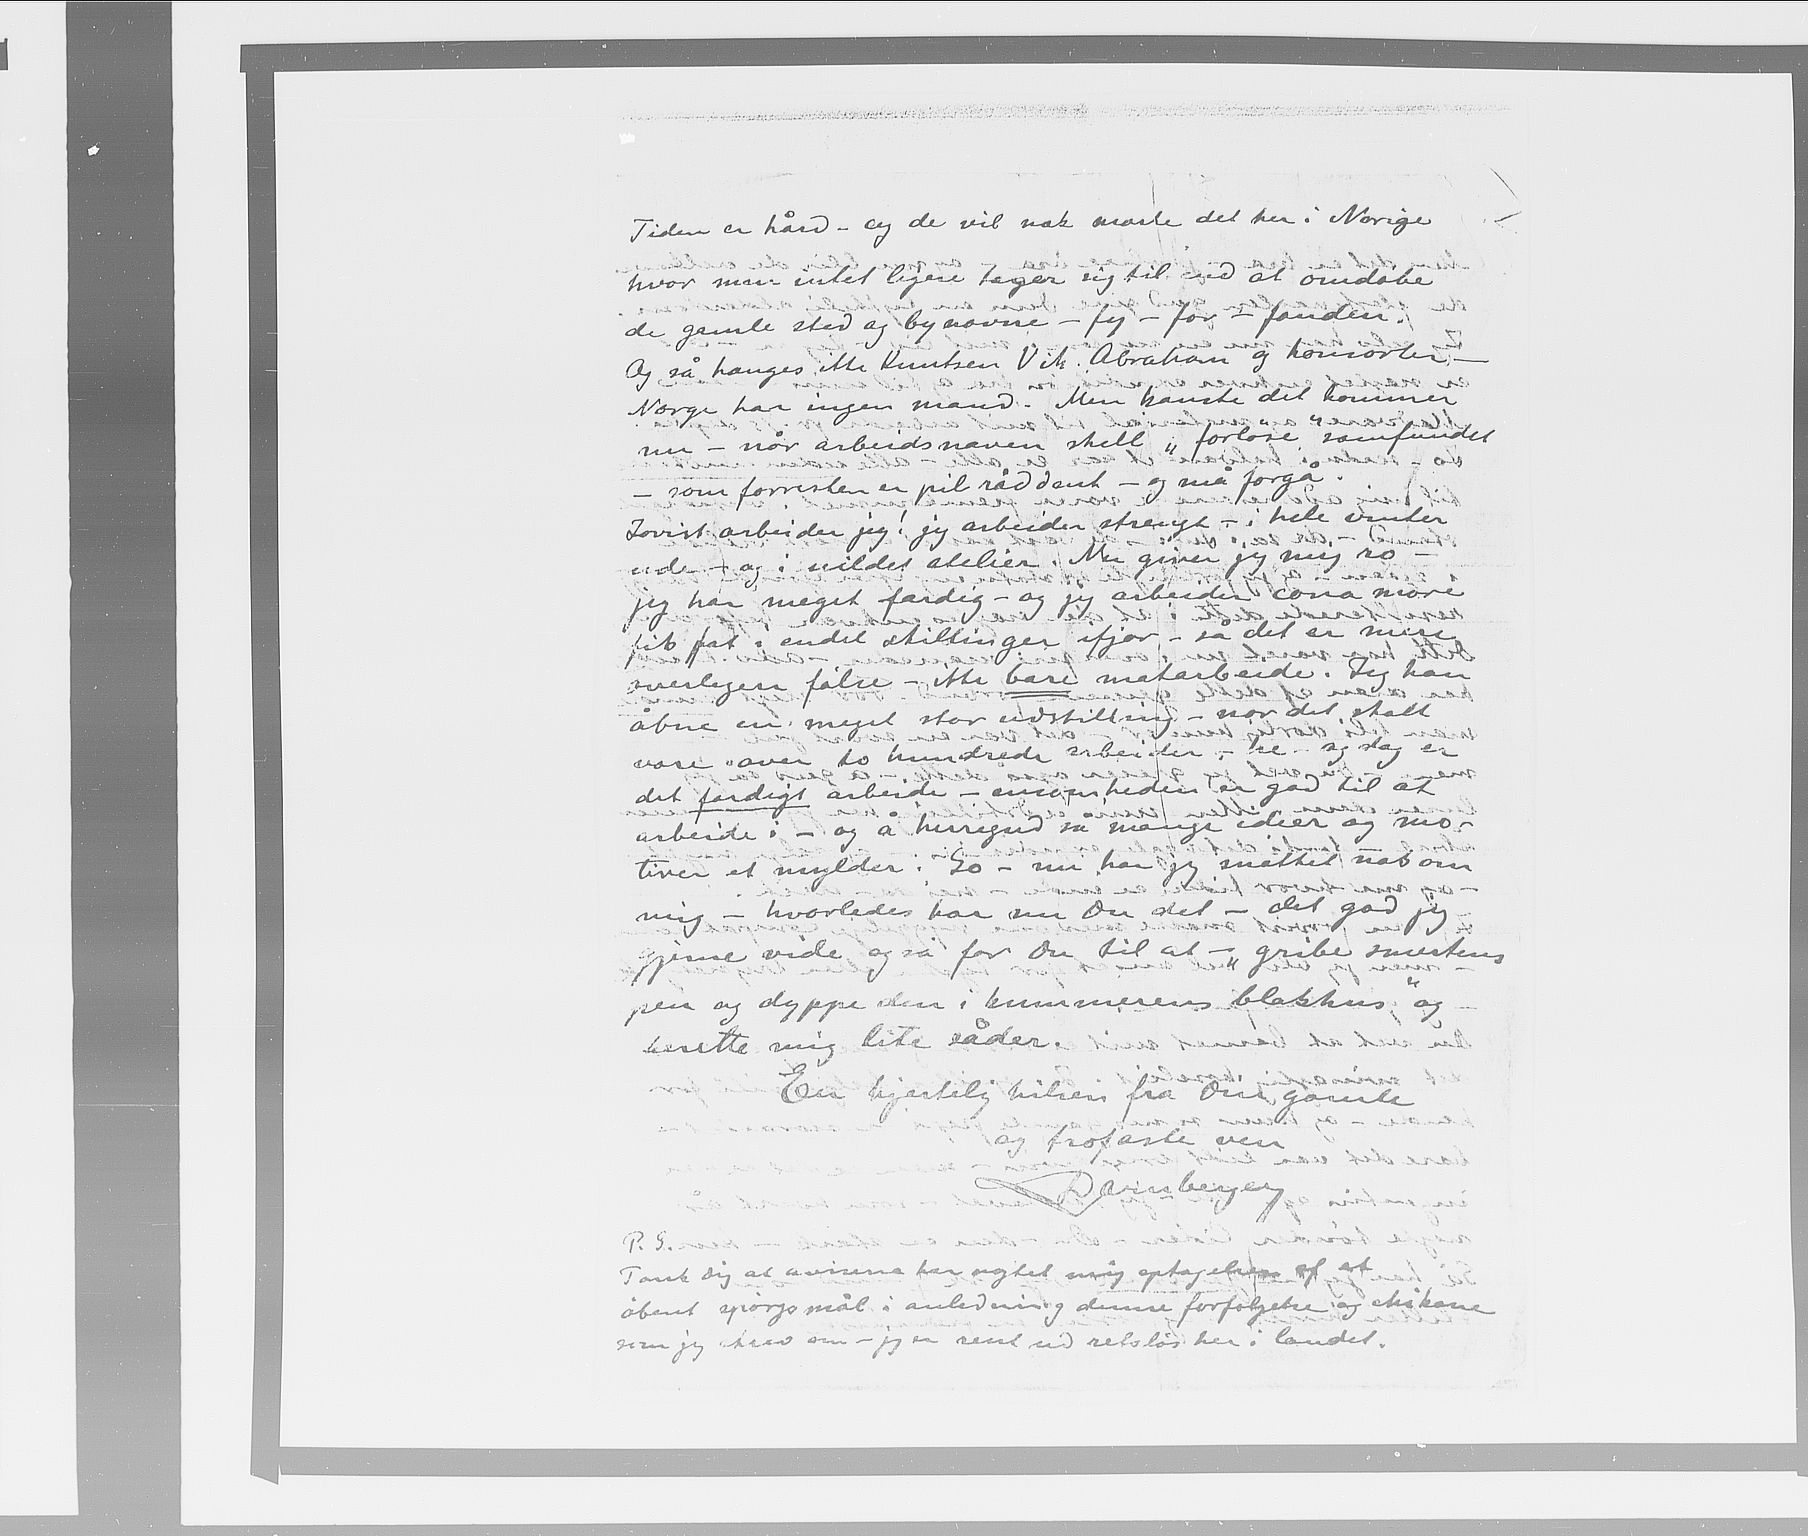 Tiden er hård – og de vil nok mærke det her i Norige
hvor man intet ligere tager sig til end at omdøbe
de gamle sted og bynavne – fy – for – fanden.
Og så hænges ikke Knutsen Vik. Abraham og konsorter –
Norge har ingen mand. Men kanske det kommer
nu – når arbeidsnæven skall „forløse" samfundet
– som forresten er pil råddent – og må forgå.
Jovist arbeider jeg! jeg arbeider strengt – i hele vinter
ude – og i uildet atelier. Nu giver jeg mig ro –
jeg har meget færdig – og jeg arbeider cona more
fik fat i endel skillinger ifjor – så det er mere
overlegen følse – ikke bare matarbeide. Jeg kan
åbne en meget stor udstilling – når det skall
være over to hundrede arbeider – he – og dog er
det færdigt arbeide – ensomheden er god til at
arbeide i – og å herregud så mange ideer og mo-
tiver et mylder. So – nu har jeg snakket nok om
mig – hvorledes har nu Du det – det gad jeg
gjerne vide også får Du til at – „gribe smertens
pen og dyppe den i kummerens blækhus" og
berette mig lite såder.
En hjertelig hilsen fra Din gamle
og trofaste ven
Dørnberger
P. S.
Tænk dig at aviserne har nægtet mig optagelsen af et
åbent spørgsmål i anledning denne forfølgelse og chikane
som jeg skrev om – jeg er rent ud retsløs her i landet.